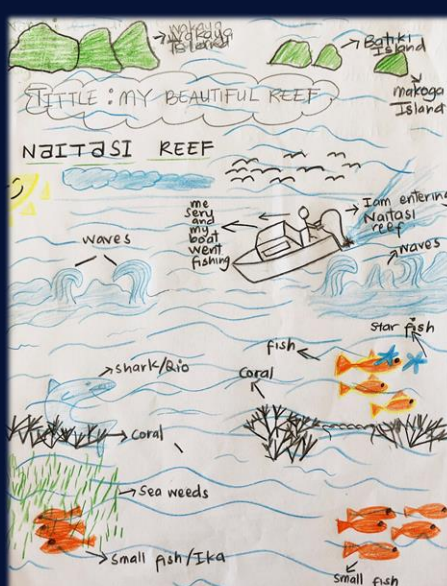 Wakaya
Island
Batiki
Island
makoga
Island
TITTLE : MY BEAUTIFUL REEF
NaITaSI REEF
me
Seru
and
my
boat
went
fishing
I am entering
Naitasi
reef
waves
waves
star fish
fish
Coral
shark/Qio
Coral
Sea weeds
Small fish/Ika
Small fish